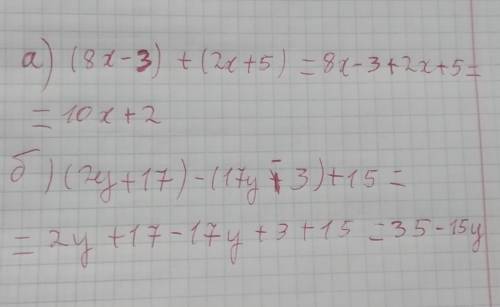 а) (8x-3) + (2x+5) = 8x-3+2x+5=
= 10x+2
б) (2y+17)-(17y-3)+15 =
= 2y+17-17y+3+15 =35-15y